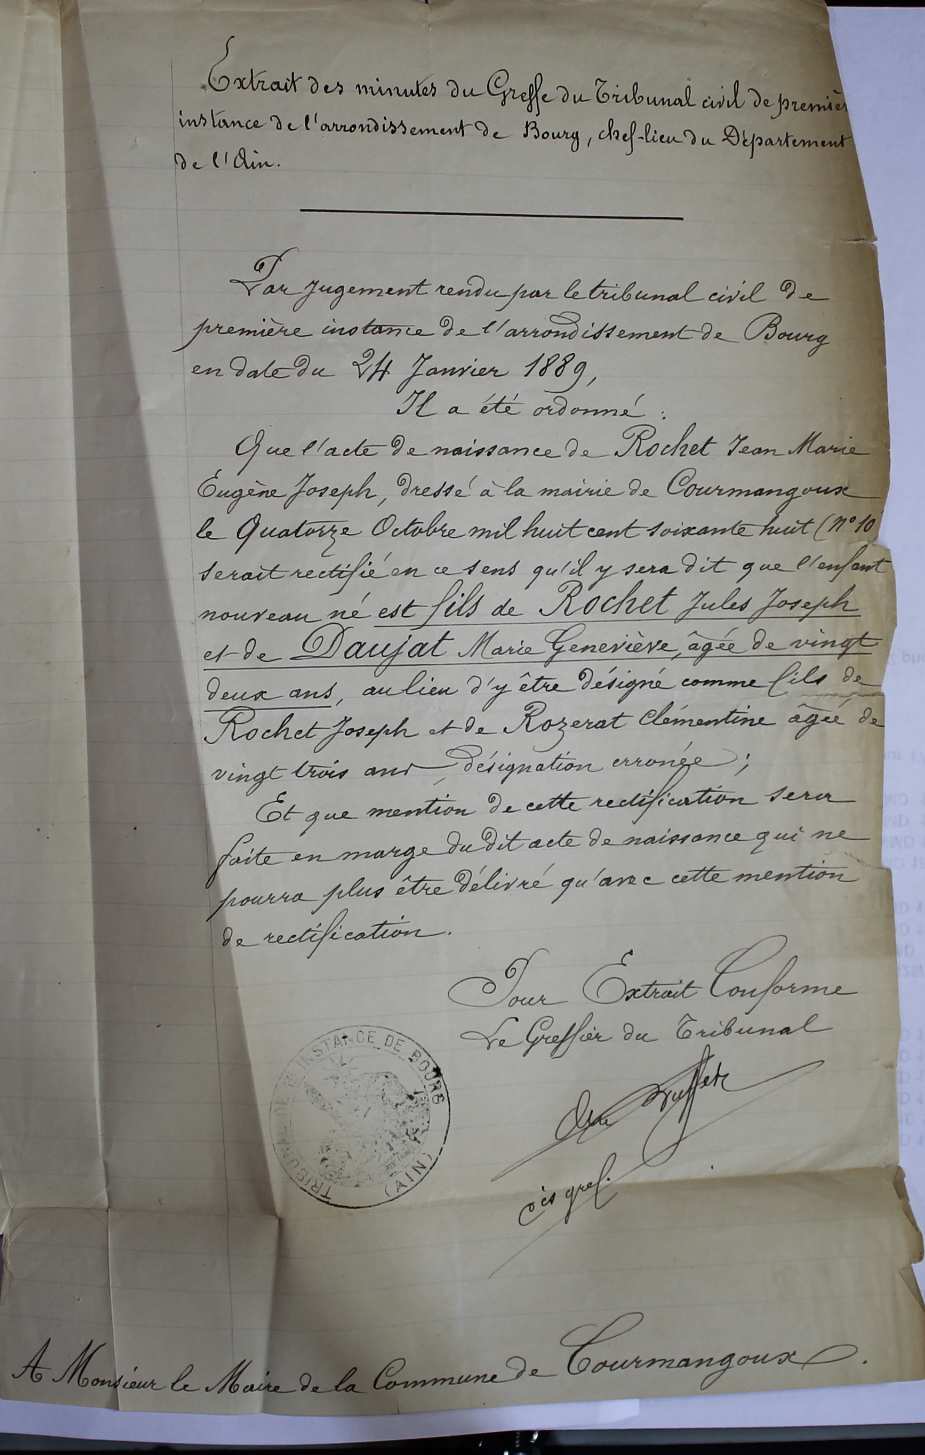 Extrait des minutes du Greffe du Tribunal civil de premièr
instance de l'arrondissement de Bourg, chef-lieu du Département
de l'Ain.
Par jugement rendu par le tribunal civil de
première instance de l'arrondissement de Bourg
en date du 24 Janvier 1889,
Il a été ordonné :
Que l'acte de naissance de Rochet Jean Marie
Eugène Joseph, dressé à la mairie de Courmangoux
le Quatorze Octobre mil huit cent soixante huit (N° 10
serait rectifié en ce sens qu'il y sera dit que l'enfant
nouveau né est fils de Rochet Jules Joseph
et de Daujat Marie Geneviève, âgée de vingt
deux ans, au lieu d'y être désigné comme fils de
Rochet Joseph et de Rozerat Clémentine âgée de
vingt trois ans, désignation erronée ;
Et que mention de cette rectification sera
faite en marge du dit acte de naissance qui ne
pourra plus être délivré qu'avec cette mention
de rectification.
Pour Extrait Conforme
Le Greffier du Tribunal
cis gref.
INSTANCE DE BOURG
(AIN)
A Monsieur le Maire de la Commune de Courmangoux.